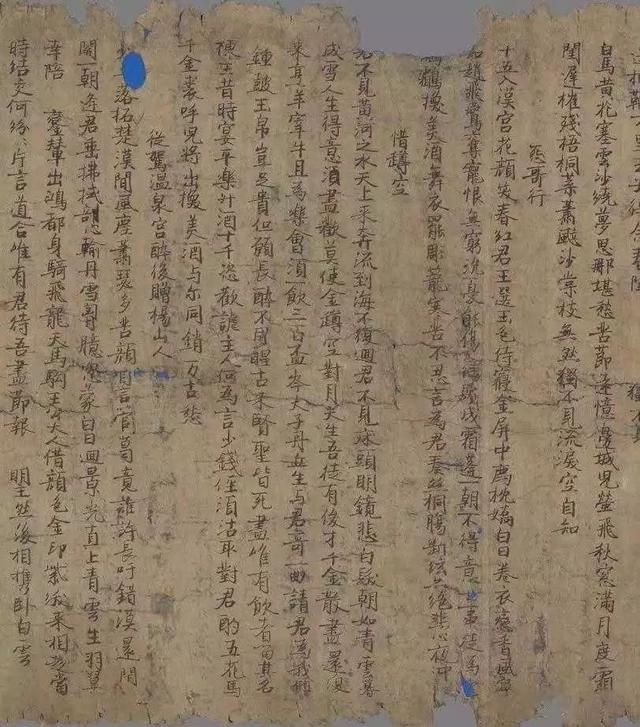 白馬黃花塞雲沙繞夢思那堪愁苦節遠憶邊城兒螢飛秋窓滿月度霜
閨遲摧殘梧桐葉蕭颯沙棠枝無然獨不見流淚空自知
怨哥行
十五入漢宮花顏笑春紅君王選玉色侍寢金屏中薦枕嬌白日卷衣戀香風寧
知趙飛鷰奪寵恨無窮沉憂能傷人綠鬢成霜蓬一朝不得意世事徒為
鸘換美酒舞衣罷彫籠寒苦不忍言為君奏絲桐腸斷弦亦絕悲心夜忡
惜罇空
君不見黃河之水天上來奔流到海不復迴君不見床頭明鏡悲白髮朝如青雲暮
成雪人生得意須盡歡莫使金罇空對月天生吾徒有俊才千金散盡還復
來烹羊宰牛且為樂會須一飲三百盃岑夫子丹丘生与君哥一曲請君為我傾
鍾鼓玉帛豈足貴但願長醉不用醒古來賢聖皆死盡唯有飲者留其名
陳王昔時宴平樂斗酒十千恣歡謔主人何為言少錢徑須沽取對君酌五花馬
千金裘呼兒將出換美酒与尔同銷万古愁
從駕溫泉宮醉後贈楊山人
落拓楚漢間風塵蕭瑟多苦顏自言管葛竟誰許長吁錯漠還閇
關一朝逢君垂拂拭剖心輸丹雪胸臆忽蒙白日迴景光直上青雲生羽翼
幸陪鸞輦出鴻都身騎飛龍天馬駒王公大人借顏色金印紫綬來相趨當
時結交何紛紛片言道合唯有君待吾盡節報明主然後相携卧白雲